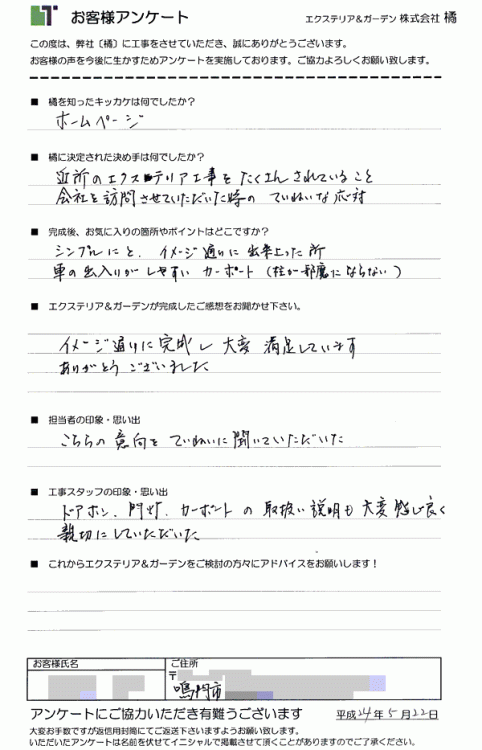 お客様アンケート
エクステリア&ガーデン 株式会社 橘
この度は、弊社〔橘〕に工事をさせていただき、誠にありがとうございます。
お客様の声を今後に生かすためアンケートを実施しております。ご協力よろしくお願い致します。
■ 橘を知ったキッカケは何でしたか？
ホームページ
■ 橘に決定された決め手は何でしたか？
近所のエクステリア工事をたくさんされていること
会社を訪問させていただいた時のていねいな応対
■ 完成後、お気に入りの箇所やポイントはどこですか？
シンプルにと、イメージ通りに出来上った所
車の出入りがしやすいカーポート（柱が邪魔にならない）
■ エクステリア&ガーデンが完成したご感想をお聞かせ下さい。
イメージ通りに完成し大変満足しています
ありがとうございました
■ 担当者の印象・思い出
こちらの意向をていねいに聞いていただいた
■ 工事スタッフの印象・思い出
ドアホン、門灯、カーポートの取扱い説明も大変感じ良く
親切にしていただいた
■ これからエクステリア&ガーデンをご検討の方々にアドバイスをお願いします！
お客様氏名
ご住所
〒
鳴門市
アンケートにご協力いただき有難うございます
平成24年5月22日
大変お手数ですが返信用封筒にてご返送下さいますようお願い致します。
いただいたアンケートは名前を伏せてイニシャルで掲載させて頂くことがありますのでご了承ください。